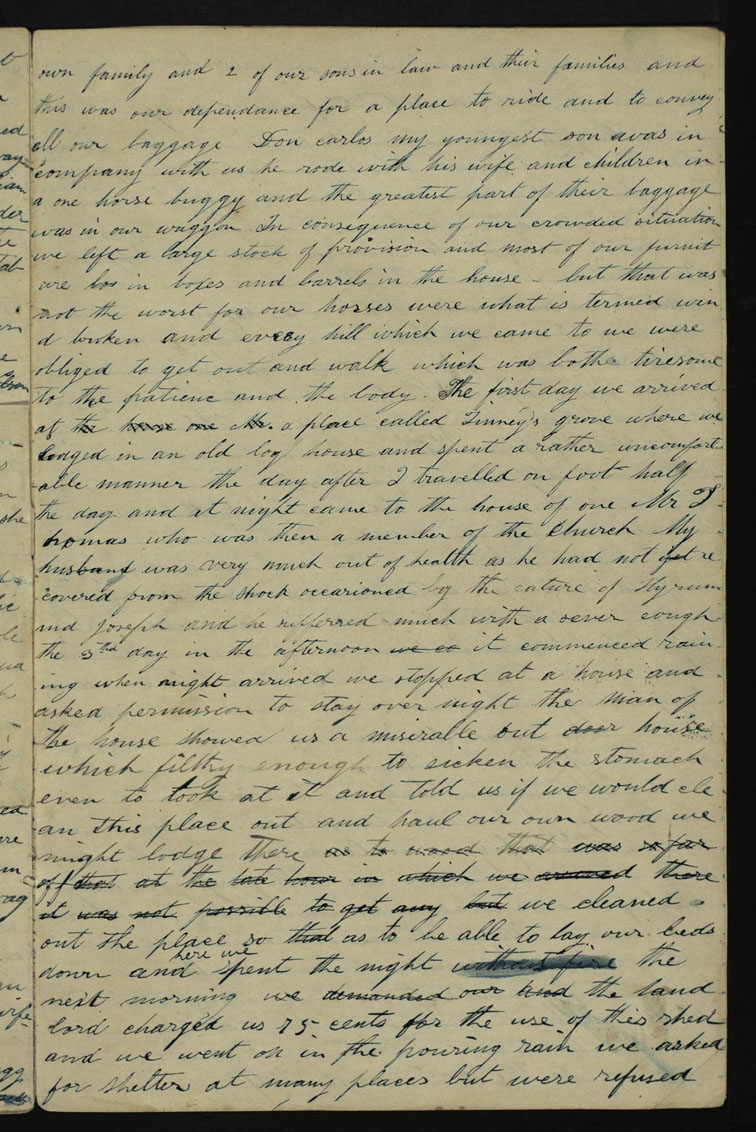 own family and 2 of our sons in law and their families and
this was our dependance for a place to ride and to convey
all our baggage Don carlos my youngest son was in
company with us he rode with his wife and children in
a one horse buggy and the greatest part of their baggage
was in our waggon In consequence of our crowded situation
we left a large stock of provision and most of our furnit
ure in boxes and barrels in the house - but that was
not the worst for our horses were what is termed win
d broken and every hill which we came to we were
obliged to get out and walk which was both tiresome
to the patienc and the body. The first day we arrived
at the house one Mr. a place called Tinney's grove where we
lodged in an old log house and spent a rather uncomfort
able manner the day after I travelled on foot half
the day and at night came to the house of one Mr T
homas who was then a member of the church My
husband was very much out of health as he had not yet re
covered from the shock occasioned by the cature of Hyrum
and joseph and he sufferred much with a sever cough
the 3rd day in the afternoon we co it commenced rain
ing when night arrived we stopped at a house and
asked permission to stay over night the man of
the house showed us a misirable out door house
which filthy enough to sicken the stomach
even to look at it and told us if we would cle
an this place out and haul our own wood we
might lodge there as to wood that was so far
off that at the late hour in which we arived there
it was not possible to get any but we cleaned
out the place so that as to be able to lay our beds
down and here we spent the night without fire the
next morning we demanded our and the land
lord charged us 75 cents for the use of this shed
and we went on in the pouring rain we asked
for shelter at many places but were refused